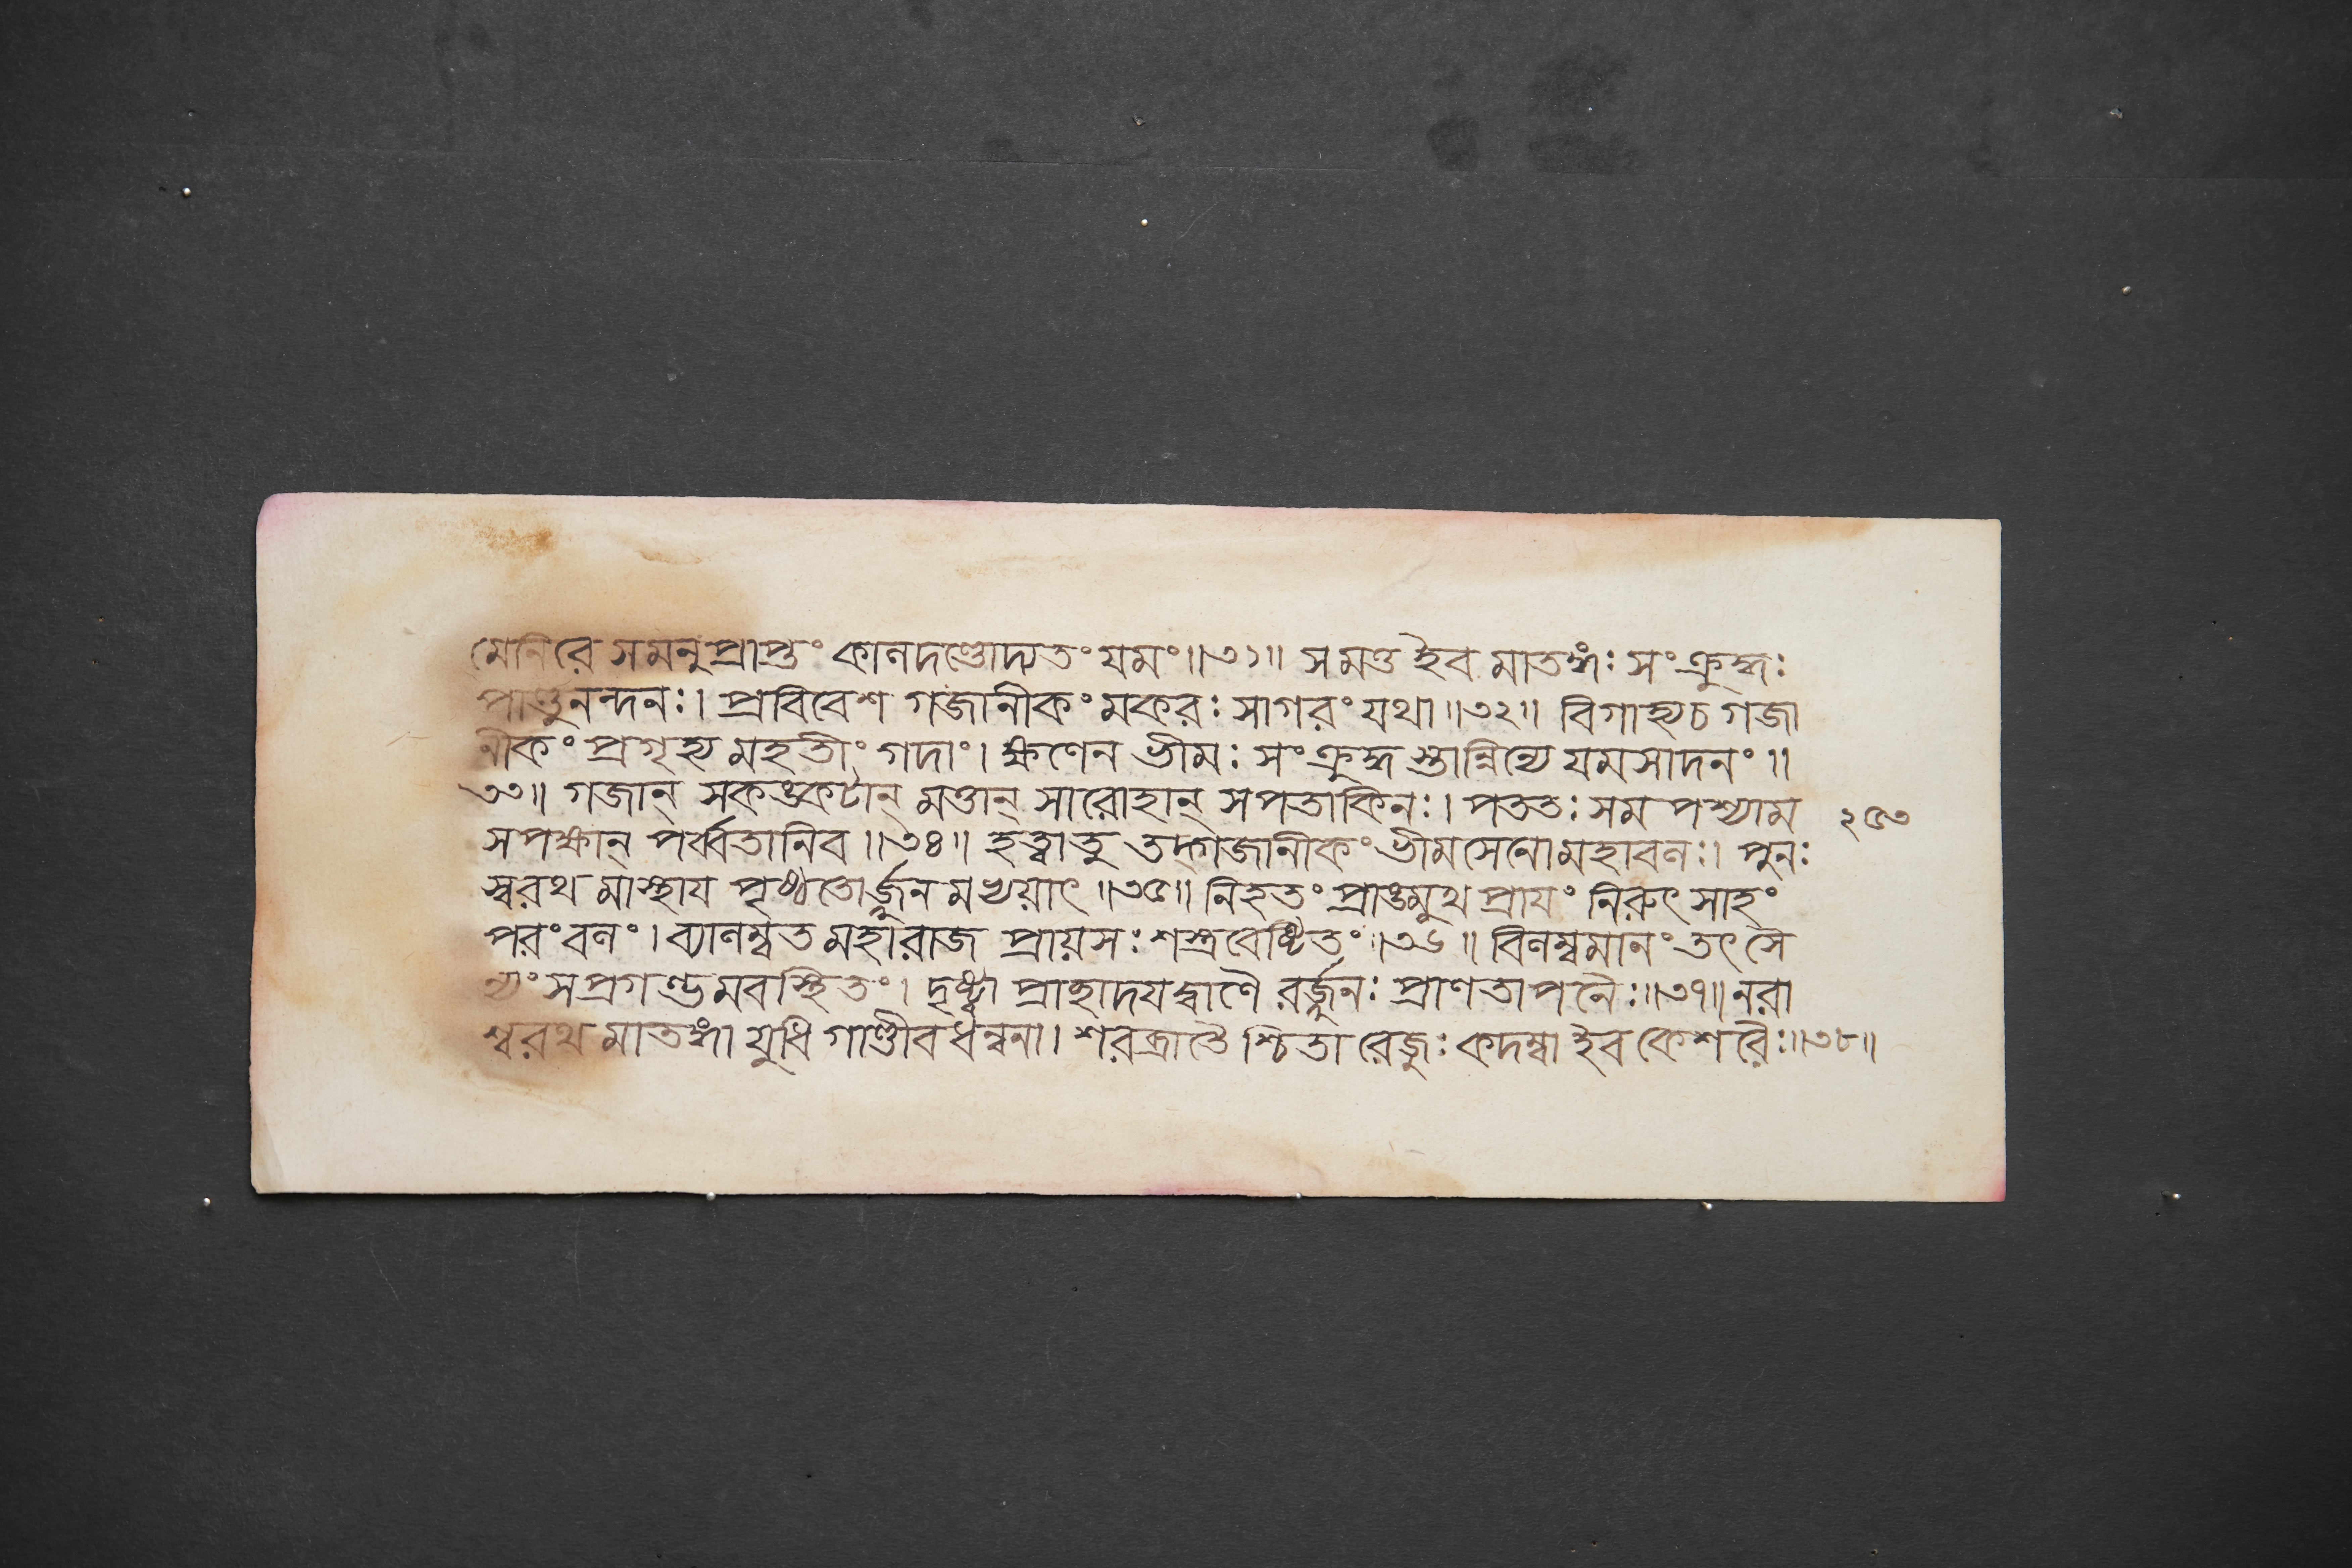 মেনিরে সমনুপ্রাপ্তং কালদণ্ডোদ্যতং যমং॥৩১॥ সমত্ত ইব মাতঙ্গঃ সংক্রুদ্ধঃ
পাণ্ডুনন্দনঃ। প্রবিবেশ গজানীকং মকরঃ সাগরং যথা॥৩২॥ বিগাহ্যচ গজা
নীকং প্রগৃহ্য মহতীং গদাং। ক্ষণেন ভীমঃ সংক্রুদ্ধ স্তান্নিন্যে যমসাদনং॥
৩৩॥ গজান্ সকঙ্কটান্ মত্তান্ সারোহান্ সপতাকিনঃ। পততঃ সম পশ্যাম
সপক্ষান্ পর্ব্বতানিব॥৩৪॥ হত্বাতু তদ্গজানীকং ভীমসেনোমহাবলঃ। পুনঃ
স্বরথ মাস্থায পৃষ্ঠতোর্জ্জুন মভ্যয়াৎ॥৩৫॥ নিহতং প্রাঙ্মুখ প্রাযং নিরুৎ সাহং
পরং বলং। ব্যালম্বত মহারাজ প্রায়সঃ শস্ত্রবেষ্টিতং॥৩৬॥ বিলম্বমানং তৎ সৈ
ন্যং সপ্রগণ্ডমবস্থিতং। দৃষ্ট্বা প্রাহাদযদ্বাণৈ রর্জ্জুনঃ প্রাণতাপনৈঃ॥৩৭॥ নরা
শ্বরথ মাতঙ্গা যুধি গাণ্ডীবধন্বনা। শরব্রাতৈ শ্চিতা রেজুঃ কদম্বা ইব কেশরৈঃ॥৩৮॥
২৫৩